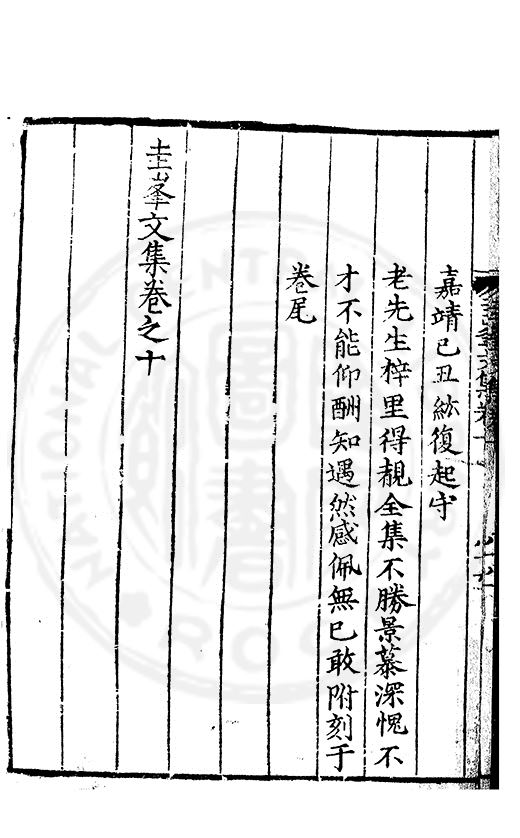 嘉靖己丑紘復起守
老先生梓里得覩全集不勝景慕深愧不
才不能仰酬知遇然感佩無已敢附刻于
卷尾
圭峯文集卷之十